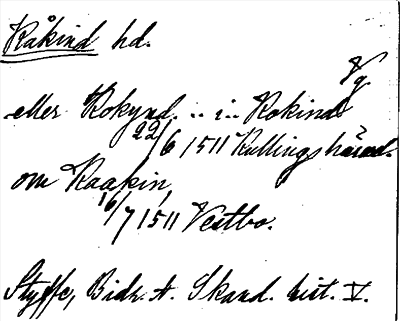 Råkind hd.
Vg
eller Rokynd. .. i .. Rokind
22/6 1511 Kullings härad.
om Raakin,
16/7 1511 Vestbo.
Styffe, Bidr. t. Skand. hist. V.